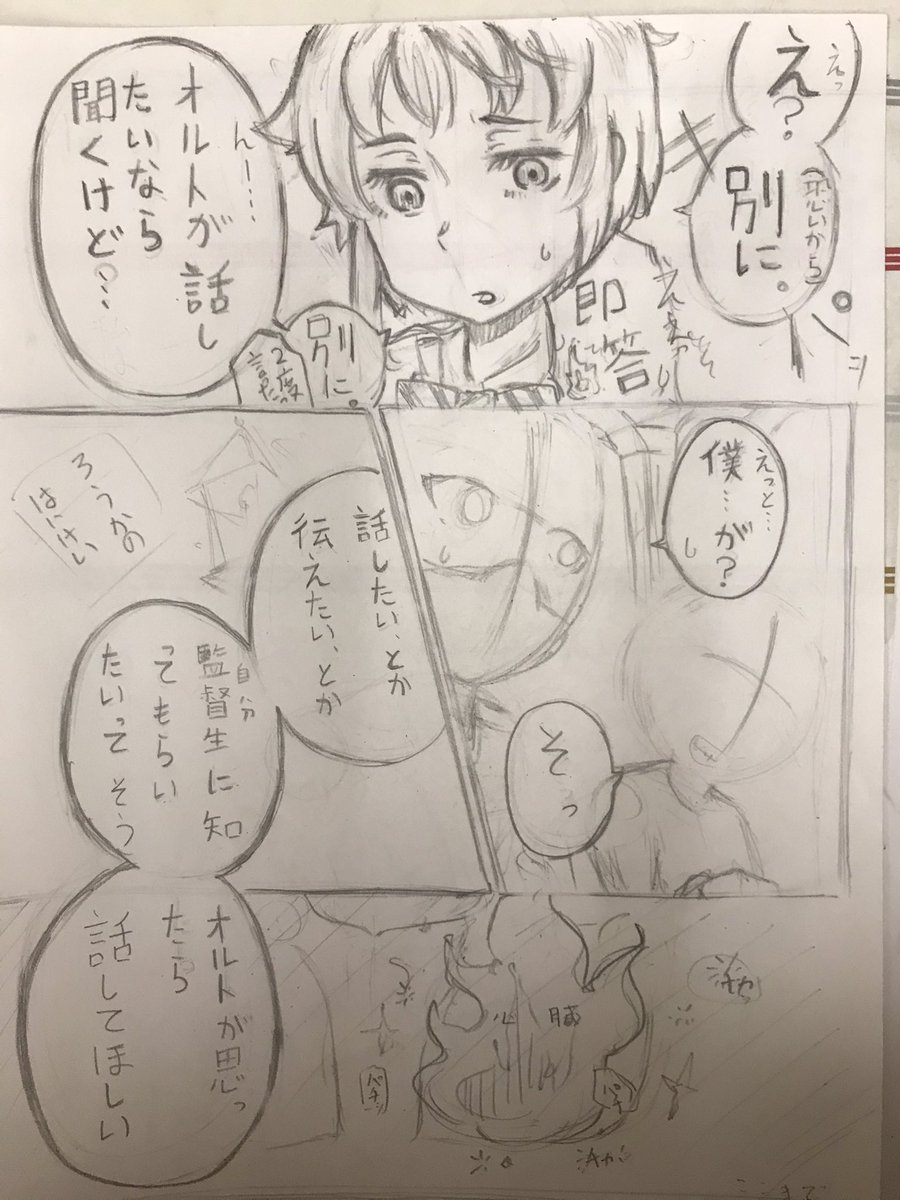 えっ
え?
(恐いから)
別に。
即答
んー……
オルトが話し
たいなら
聞くけど…
別に。
2度
言った
えっと…
僕…が?
そっ
話したい、とか
伝えたい、とか
自分
監督生に知
ってもらい
たいってそう
ろうかの
はいけい
オルトが思っ
たら
話してほしい
心臓
パチ
パチッ
ここまで